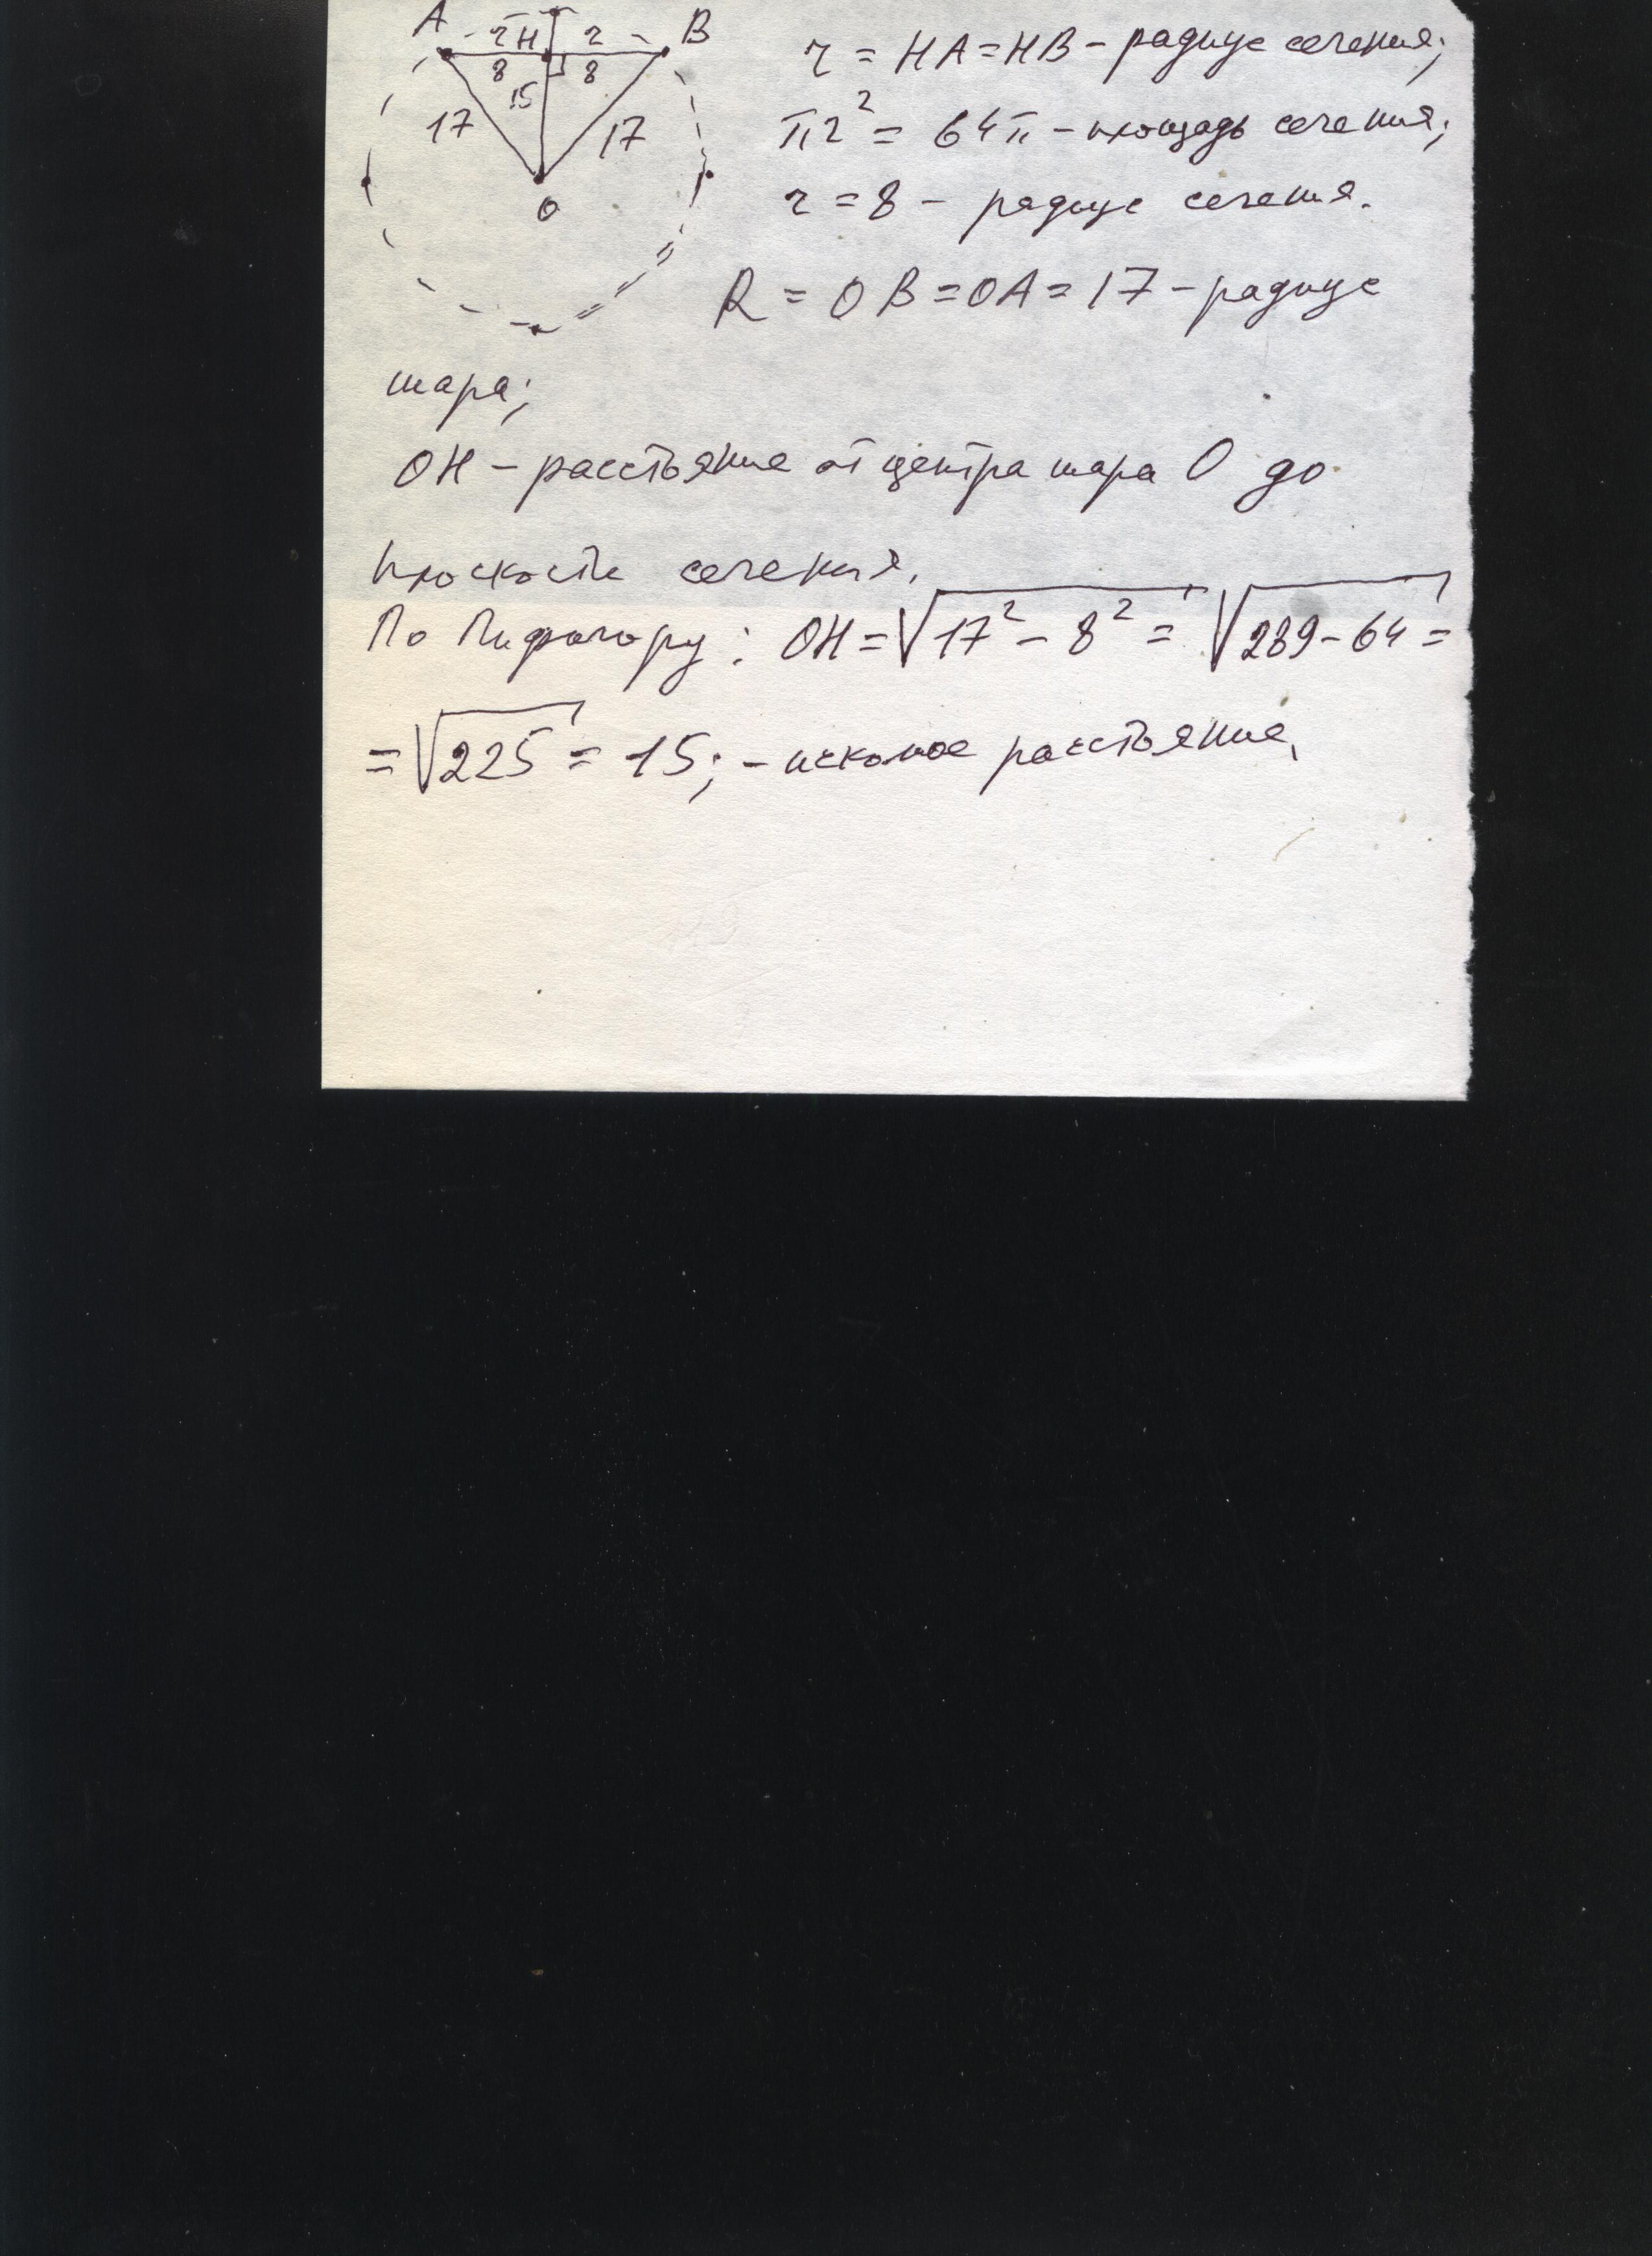 A r H r B
8 8
15
17 17
O
r = HA = HB – радиус сечения;
πr² = 64π – площадь сечения;
r = 8 – радиус сечения.
R = OB = OA = 17 – радиус
шара;
OH – расстояние от центра шара O до
плоскости сечения.
По Пифагору: OH = √17² – 8² = √289 – 64 =
= √225 = 15; – искомое расстояние,